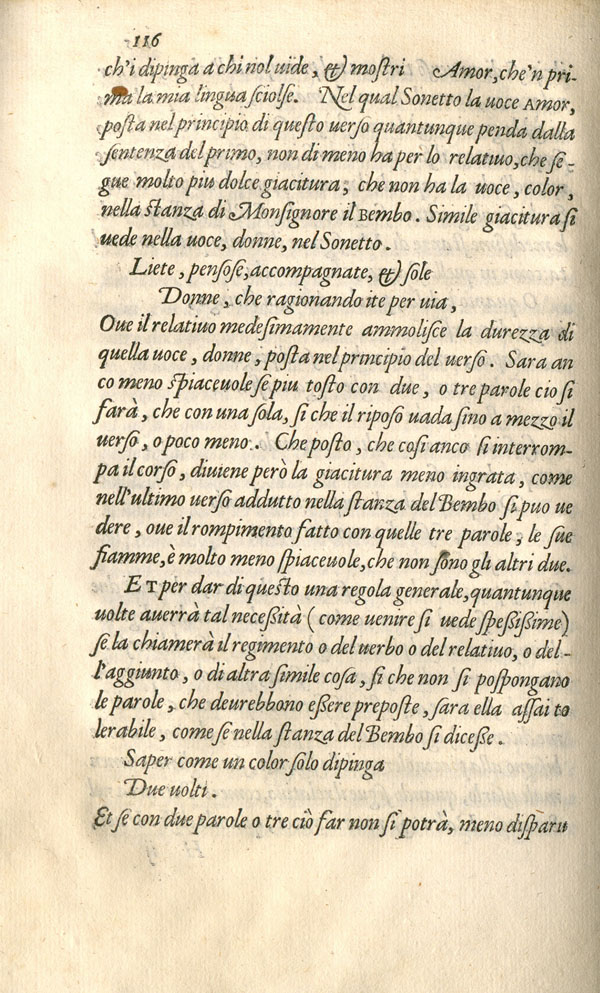 116
ch'i dipinga a chi nol uide, & mostri Amor, che'n pri-
ma la mia lingua sciolse. Nel qual Sonetto la uoce AMOR,
posta nel principio di questo uerso quantunque penda dalla
sentenza del primo, non di meno ha per lo relatiuo, che se-
gue molto piu dolce giacitura, che non ha la uoce, color,
nella stanza di Monsignore il BEMBO. Simile giacitura si
uede nella uoce, donne, nel Sonetto.
Liete, pensose, accompagnate, & sole
Donne, che ragionando ite per uia,
Oue il relatiuo medesimamente ammolisce la durezza di
quella uoce, donne, posta nel principio del uerso. Sara an
co meno spiaceuole se piu tosto con due, o tre parole cio si
farà, che con una sola, si che il riposo uada sino a mezzo il
uerso, o poco meno. Che posto, che cosi anco si interrom-
pa il corso, diuiene però la giacitura meno ingrata, come
nell'ultimo uerso addutto nella stanza del Bembo si puo ue
dere, oue il rompimento fatto con quelle tre parole, le sue
fiamme, è molto meno spiaceuole, che non sono gli altri due.
ET per dar di questo una regola generale, quantunque
uolte auerrà tal necessità (come uenire si uede spessissime)
se la chiamerà il regimento o del uerbo o del relatiuo, o del-
l'aggiunto, o di altra simile cosa, si che non si pospongano
le parole, che deurebbono essere preposte, sara ella assai to
lerabile, come se nella stanza del Bembo si dicesse.
Saper come un color solo dipinga
Due uolti.
Et se con due parole o tre ciò far non si potrà, meno disparu